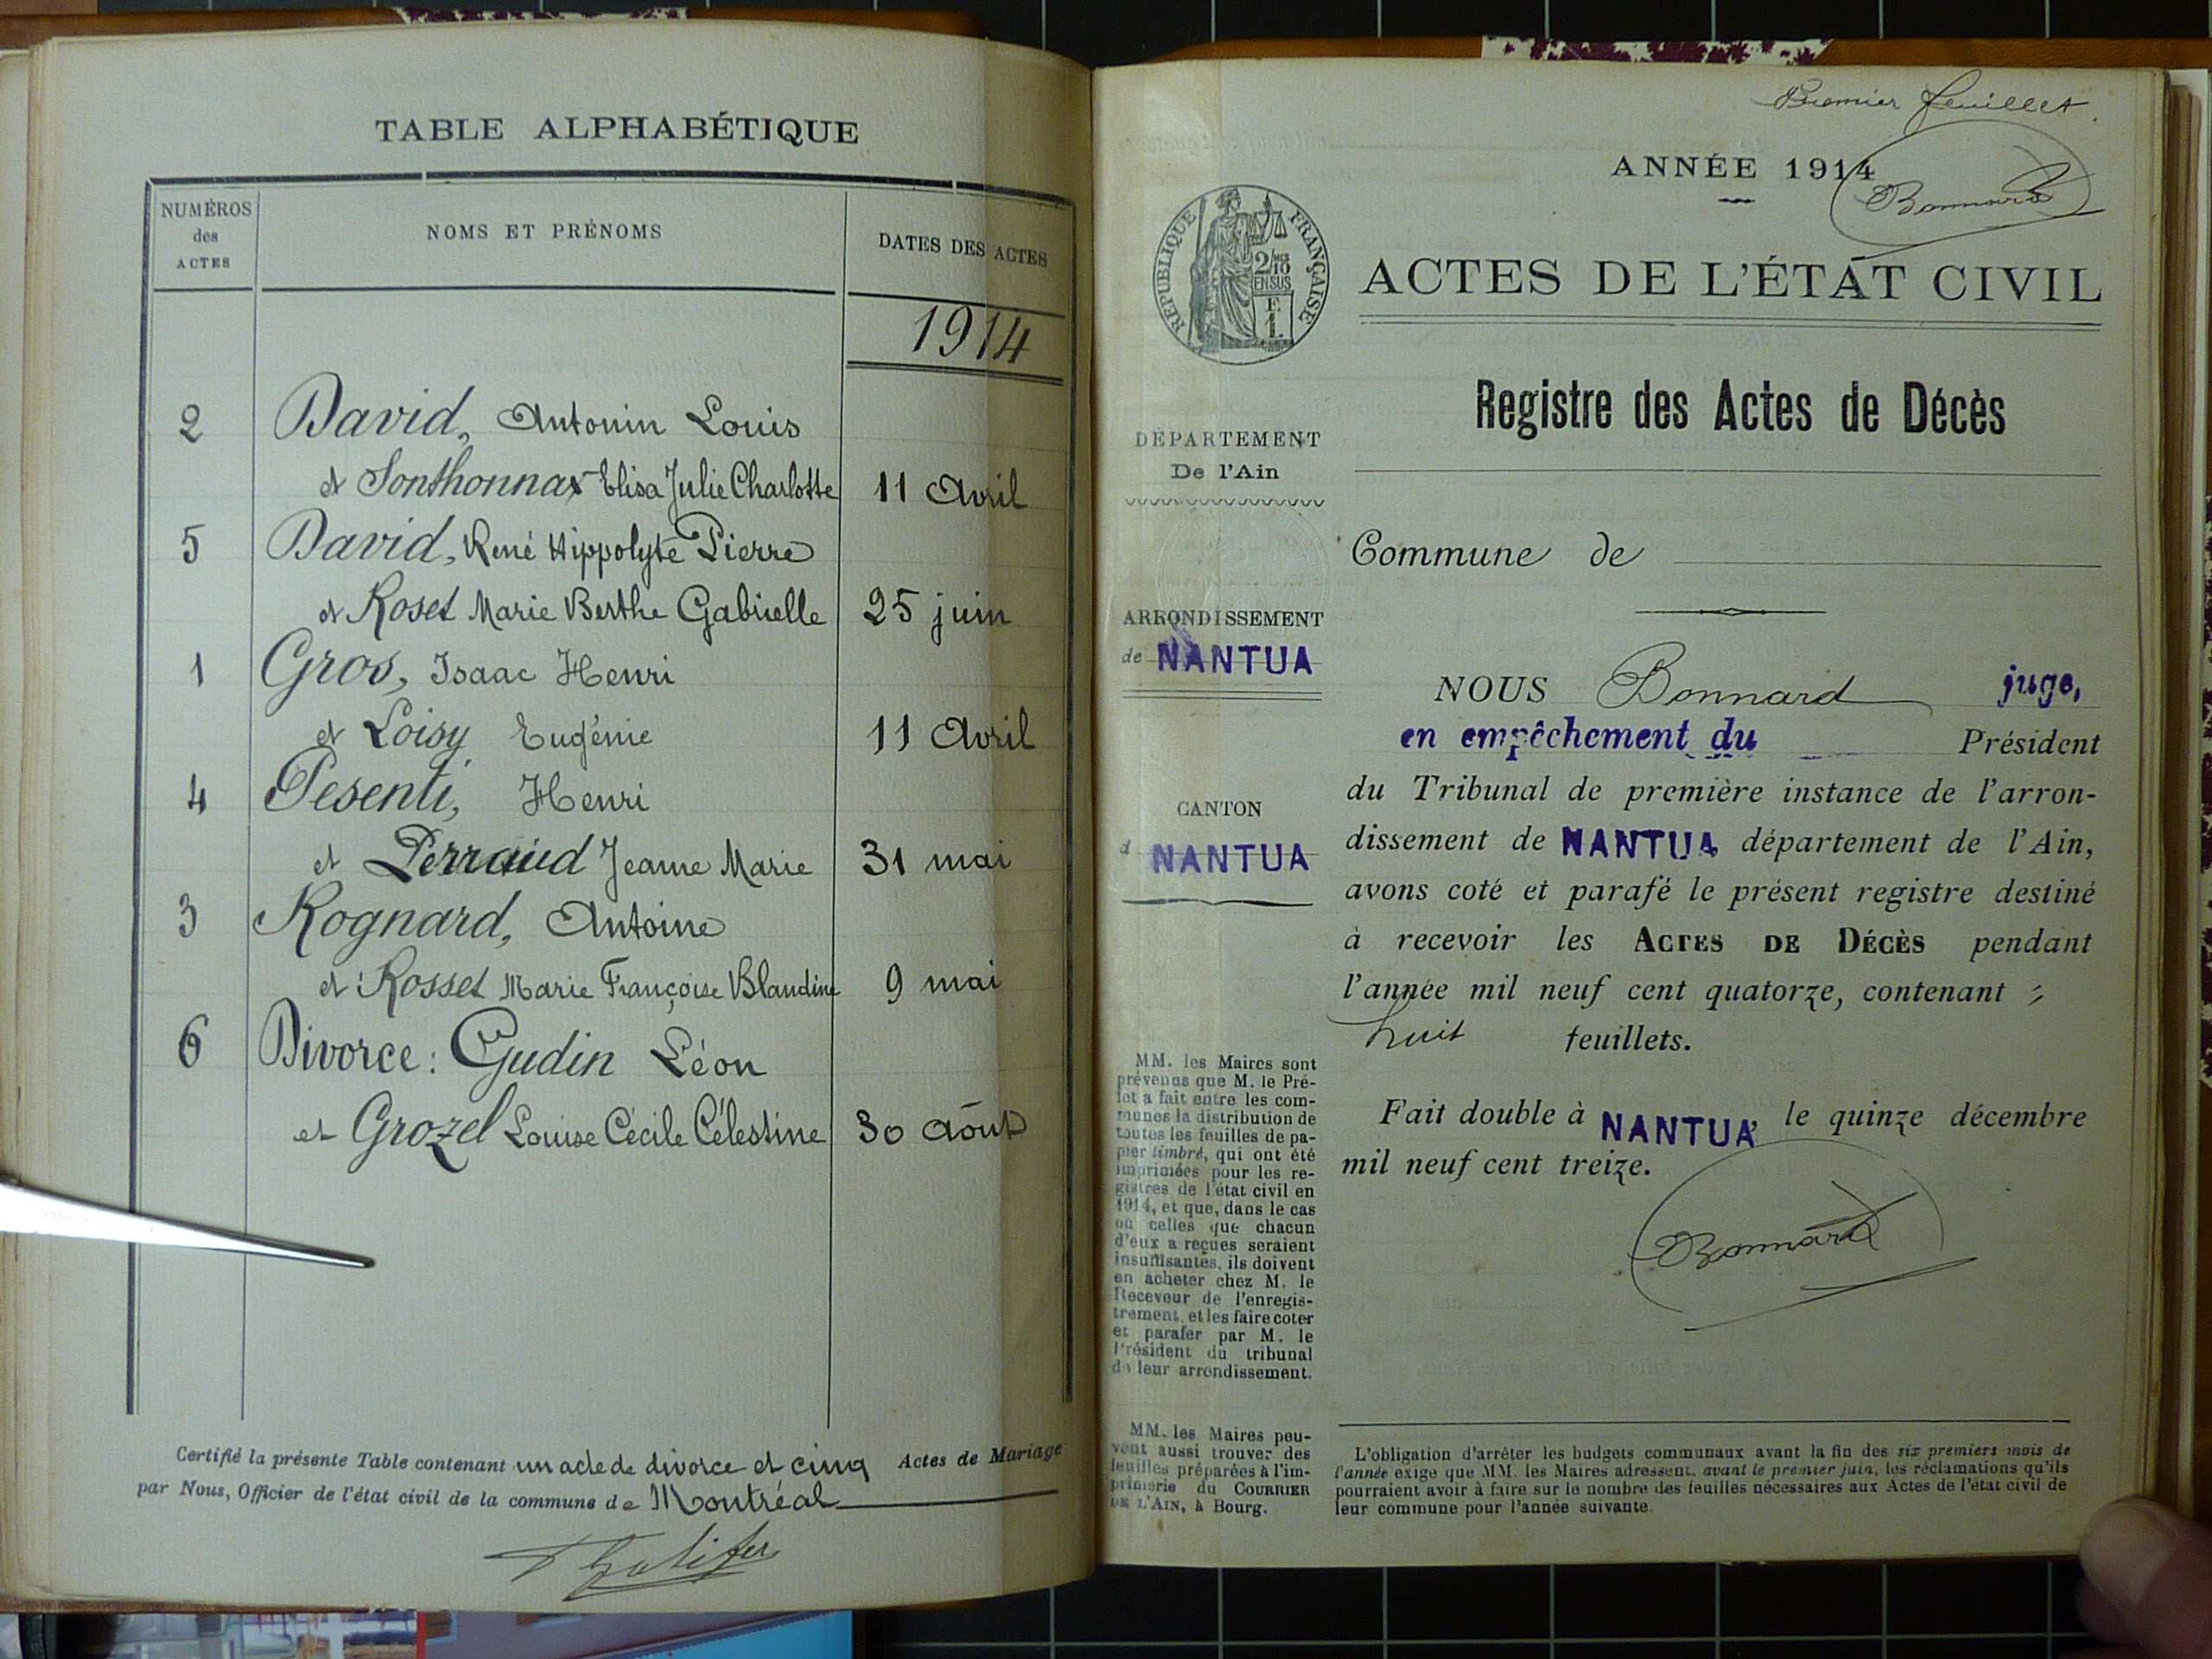 TABLE ALPHABÉTIQUE
NUMÉROS
des
ACTES
NOMS ET PRÉNOMS
DATES DES ACTES
1914
2 David, Antonin Louis
et Sonthonnax Elisa Julie Charlotte 11 Avril
5 David, René Hippolyte Pierre
et Roset Marie Berthe Gabrielle 25 juin
1 Gros, Isaac Henri
et Loisy Eugénie 11 Avril
4 Pesenti, Henri
et Perraud Jeanne Marie 31 mai
3 Rognard, Antoine
et Rosset Marie Françoise Blandine 9 mai
6 Divorce : Gudin Léon
et Grozel Louise Cécile Célestine 30 août
Certifié la présente Table contenant un acte de divorce et cinq Actes de Mariage
par Nous, Officier de l'état civil de la commune de Montréal
Premier feuillet.
ANNÉE 1914
Bonnard
RÉPUBLIQUE FRANÇAISE
2/10
EN SUS
F.
1.
ACTES DE L'ÉTAT CIVIL
Registre des Actes de Décès
DÉPARTEMENT
De l'Ain
ARRONDISSEMENT
de NANTUA
CANTON
d NANTUA
MM. les Maires sont
prévenus que M. le Pré-
fet a fait entre les com-
munes la distribution de
toutes les feuilles de pa-
pier timbré, qui ont été
imprimées pour les re-
gistres de l'état civil en
1914, et que, dans le cas
où celles que chacun
d'eux a reçues seraient
insuffisantes, ils doivent
en acheter chez M. le
Receveur de l'enregis-
trement, et les faire coter
et parafer par M. le
Président du tribunal
de leur arrondissement.
MM. les Maires peu-
vent aussi trouver des
feuilles préparées à l'im-
primerie du COURRIER
DE L'AIN, à Bourg.
Commune de
NOUS Bonnard juge,
en empêchement du Président
du Tribunal de première instance de l'arron-
dissement de NANTUA département de l'Ain,
avons coté et parafé le présent registre destiné
à recevoir les ACTES DE DÉCÈS pendant
l'année mil neuf cent quatorze, contenant
huit feuillets.
Fait double à NANTUA, le quinze décembre
mil neuf cent treize.
Bonnard
L'obligation d'arrêter les budgets communaux avant la fin des six premiers mois de
l'année exige que MM. les Maires adressent, avant le premier juin, les réclamations qu'ils
pourraient avoir à faire sur le nombre des feuilles nécessaires aux Actes de l'état civil de
leur commune pour l'année suivante.